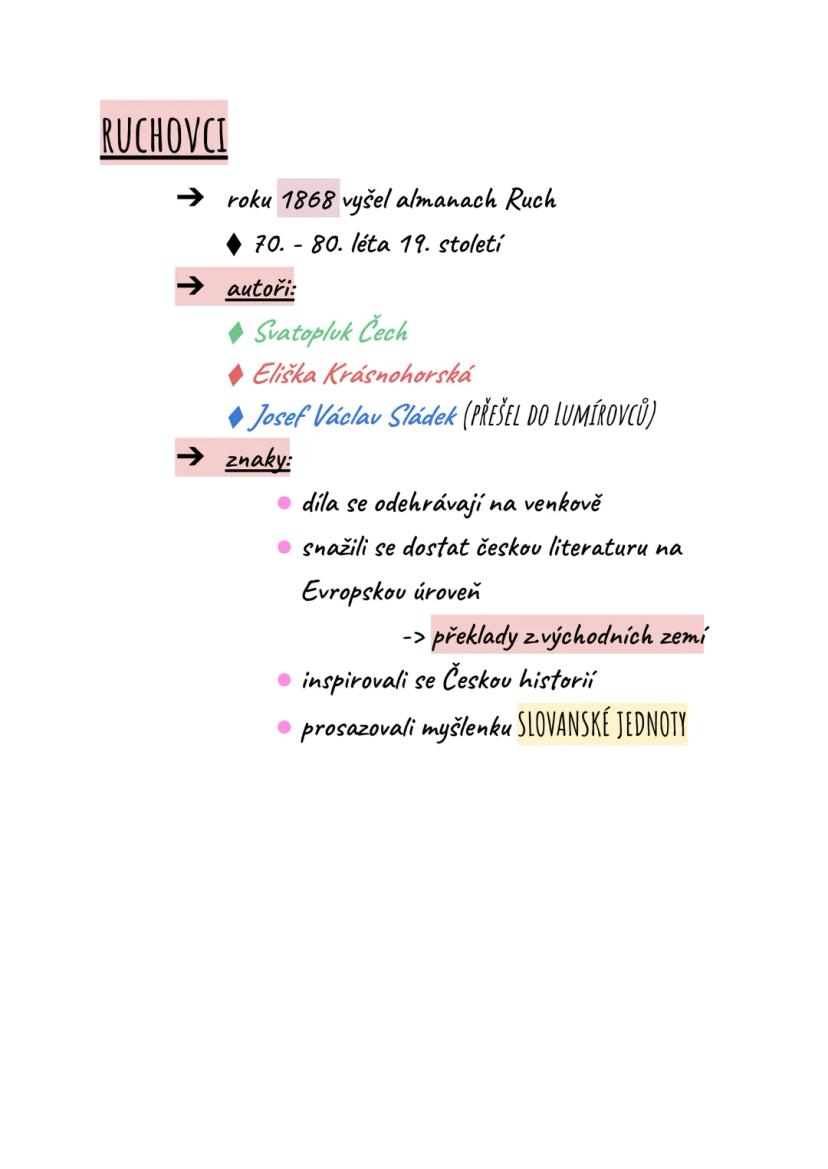 RUCHOVCI
➔ roku 1868 vyšel almanach Ruch
♦ 70. - 80. léta 19. století
➔ autoři:
♦ Svatopluk Čech
♦ Eliška Krásnohorská
♦ Josef Václav Sládek (PŘEŠEL DO LUMÍROVCŮ)
➔ znaky:
● díla se odehrávají na venkově
● snažili se dostat českou literaturu na
Evropskou úroveň
-> překlady z východních zemí
● inspirovali se Českou historií
● prosazovali myšlenku SLOVANSKÉ JEDNOTY